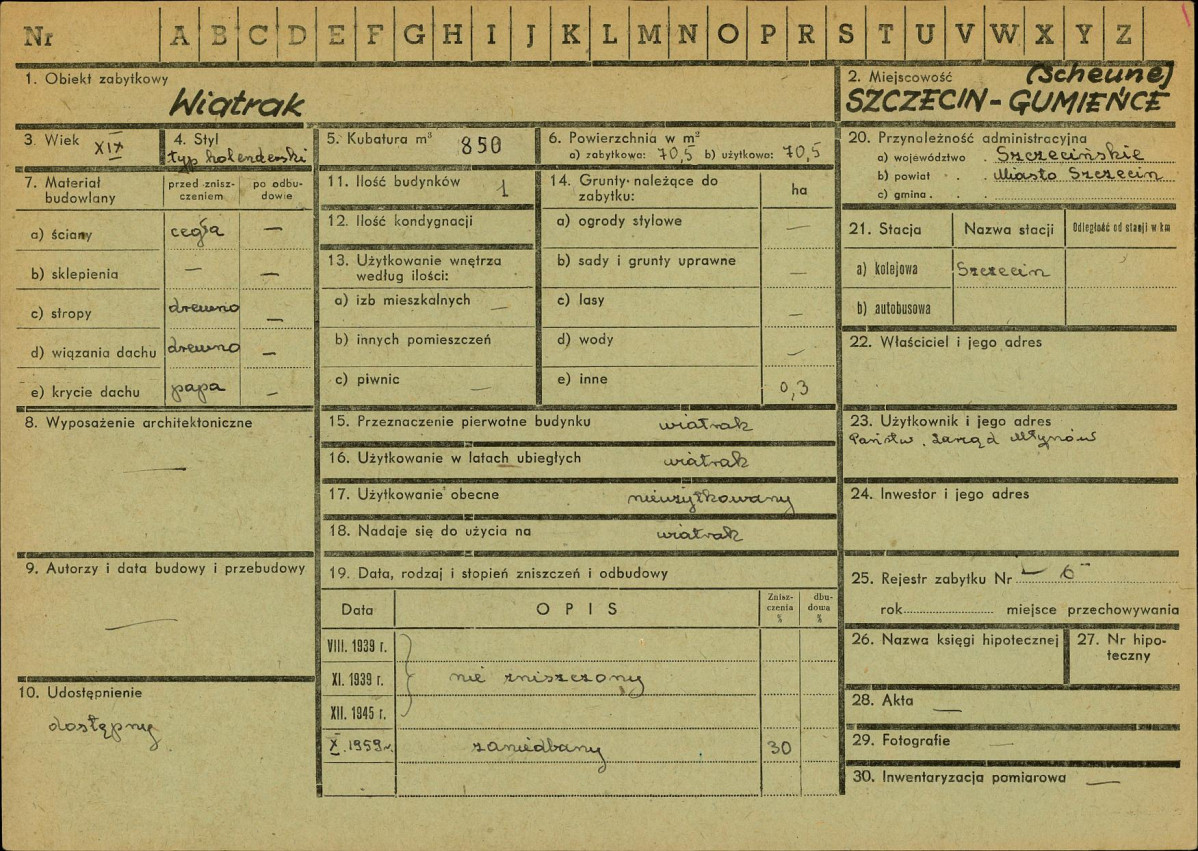 Nr A B C D E F G H I J K L M N O P R S T U V W X Y Z
1. Obiekt zabytkowy
Wiatrak
2. Miejscowość (Scheune)
SZCZECIN - GUMIEŃCE
3. Wiek XIX
4. Styl
typ holenderski
5. Kubatura m³ 850
6. Powierzchnia w m²
a) zabytkowa: 70,5 b) użytkowa: 70,5
7. Materiał budowlany
przed zniszczeniem
po odbudowie
a) ściany cegła —
b) sklepienia — —
c) stropy drewno —
d) wiązania dachu drewno —
e) krycie dachu papa —
8. Wyposażenie architektoniczne
—
9. Autorzy i data budowy i przebudowy
—
10. Udostępnienie
dostępny
11. Ilość budynków 1
12. Ilość kondygnacji
13. Użytkowanie wnętrza
według ilości:
a) izb mieszkalnych —
b) innych pomieszczeń
c) piwnic —
14. Grunty należące do
zabytku:
ha
a) ogrody stylowe —
b) sady i grunty uprawne —
c) lasy —
d) wody —
e) inne 0,3
15. Przeznaczenie pierwotne budynku wiatrak
16. Użytkowanie w latach ubiegłych wiatrak
17. Użytkowanie obecne nieużytkowany
18. Nadaje się do użycia na wiatrak
19. Data, rodzaj i stopień zniszczeń i odbudowy
Data OPIS Zniszczenia % dbudowa %
VIII. 1939 r.
XI. 1939 r. nie zniszczony
XII. 1945 r.
X. 1959 r. zaniedbany 30
20. Przynależność administracyjna
a) województwo . Szczecińskie
b) powiat . . Miasto Szczecin
c) gmina . .
21. Stacja Nazwa stacji Odległość od stacji w km
a) kolejowa Szczecin
b) autobusowa
22. Właściciel i jego adres
23. Użytkownik i jego adres
Państw. Zarząd Młynów
24. Inwestor i jego adres
25. Rejestr zabytku Nr — 6 —
rok miejsce przechowywania
26. Nazwa księgi hipotecznej
27. Nr hipo-
teczny
28. Akta —
29. Fotografie —
30. Inwentaryzacja pomiarowa —